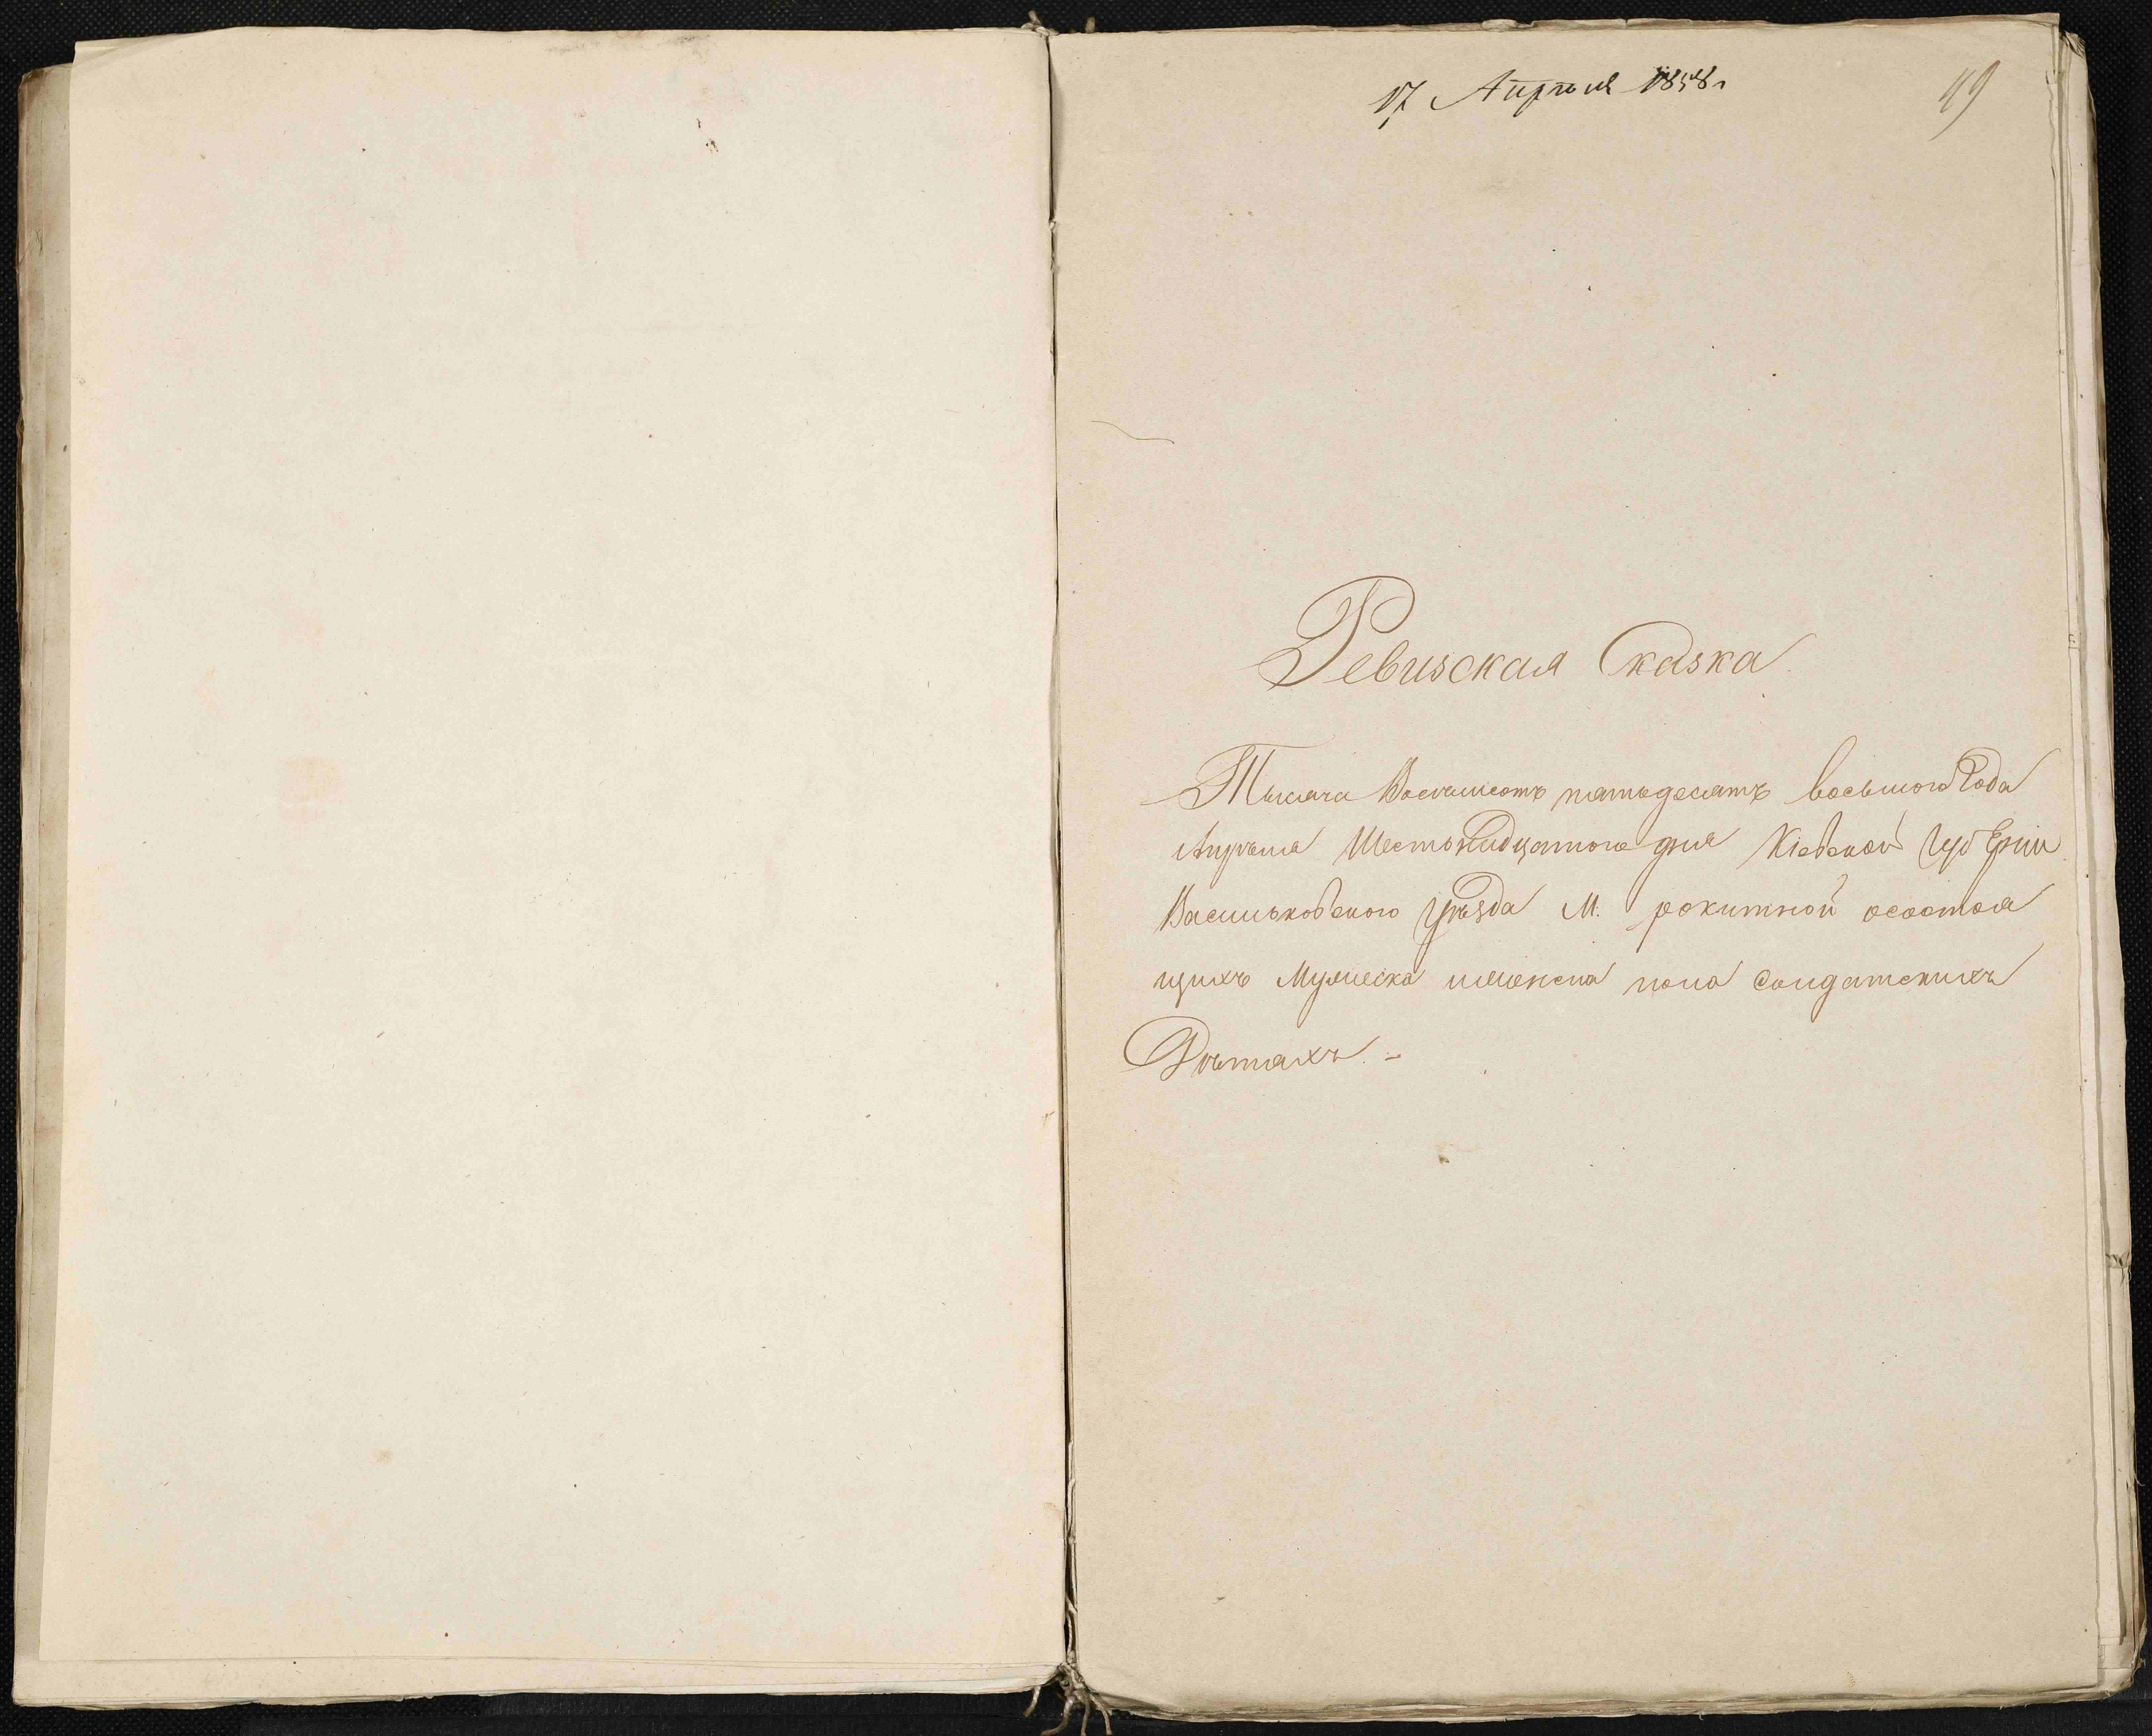 17 Апреля 1858 г
49
Ревизская Сказка
Тысяча Восемьсотъ пятьдесятъ восьмого Года
Апреля Шестьнадцатого дня Кіевской Губерніи
Васильковского Уезда М. рокитной осостоя
щихъ Мужеска иженска пола Солдатскихъ
Детяхъ. -